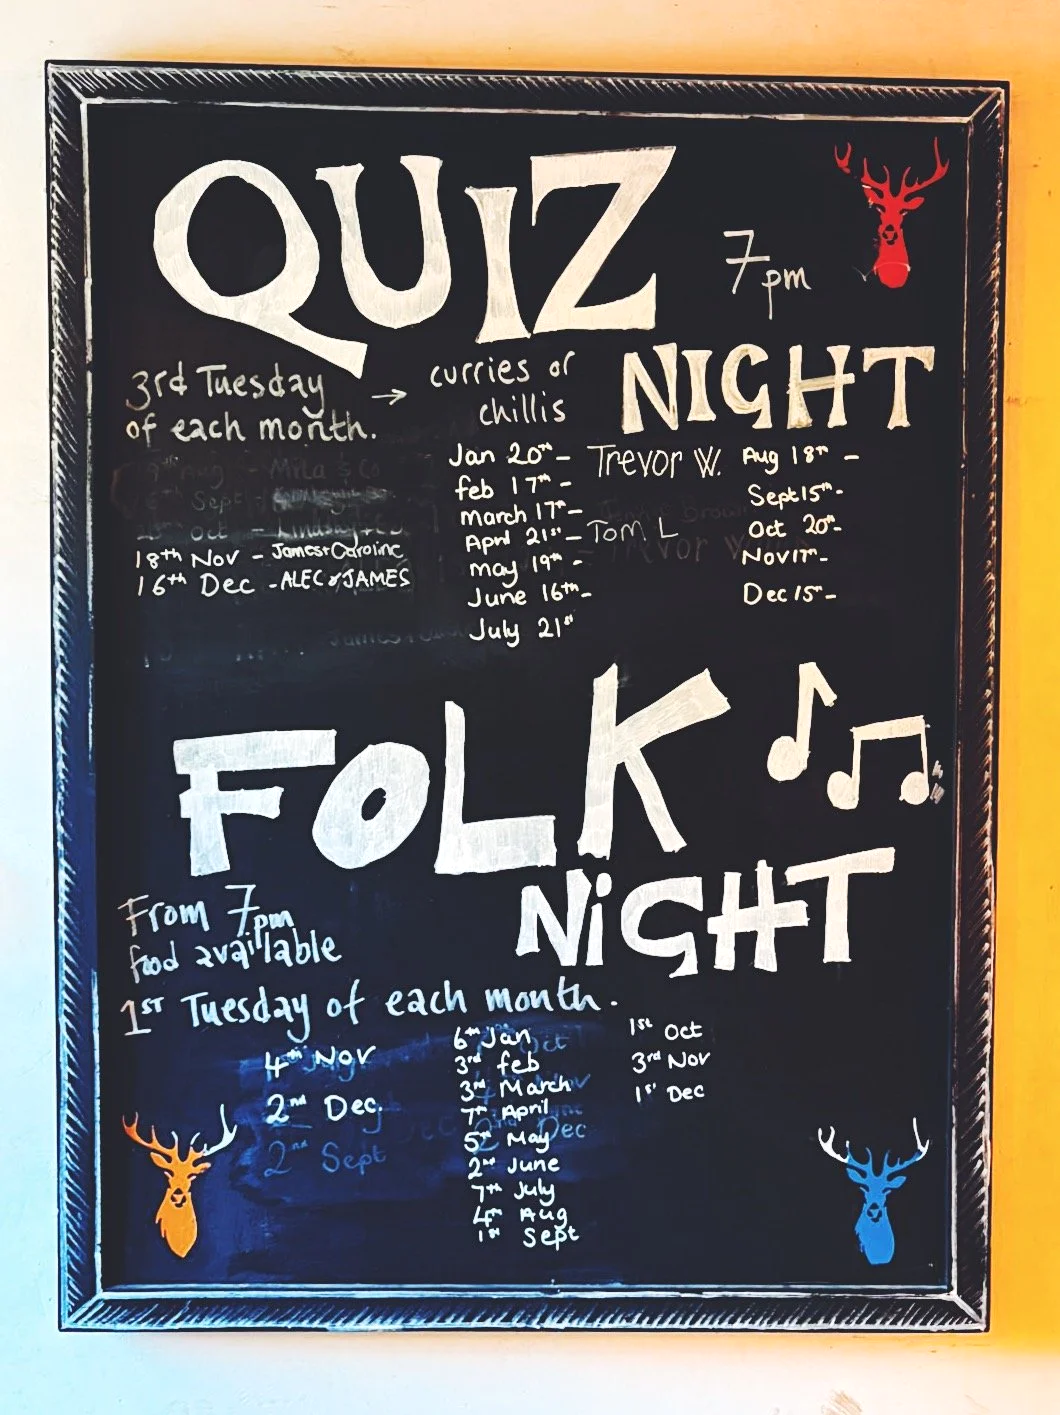 QUIZ
7pm
NIGHT
3rd Tuesday → curries or
of each month. chillis
18th Nov - James+Caroline
16th Dec - ALEC & JAMES
Jan 20th - Trevor W.
feb 17th -
March 17th -
April 21st - Tom L
May 19th -
June 16th -
July 21st
Aug 18th -
Sept 15th -
Oct 20th -
Nov 17th -
Dec 15th -
FOLK
NiGHT
From 7pm
food available
1ST Tuesday of each month.
4th Nov
2nd Dec
2nd Sept
6th Jan
3rd feb
3rd March
7th April
5th May
2nd June
7th July
4th Aug
1st Sept
1st Oct
3rd Nov
1st Dec